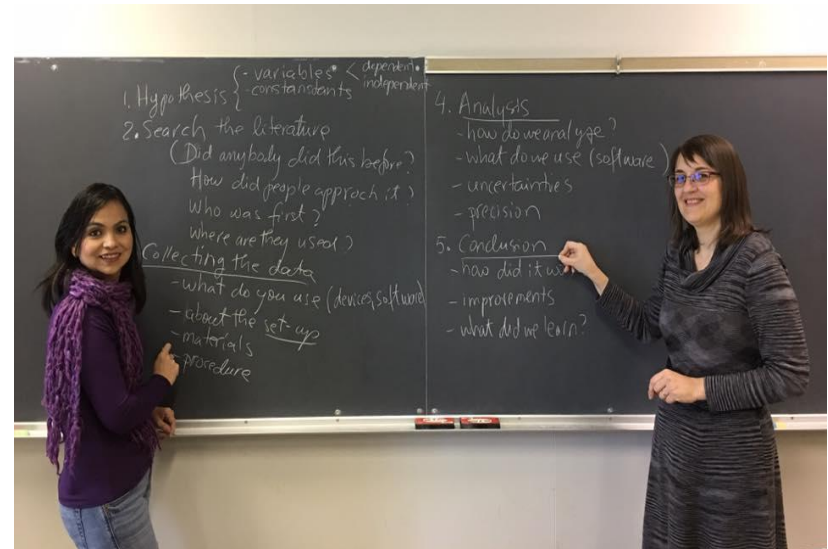 1. Hypothesis { - variables < dependent.
independent
- constandants
2. Search the literature
(Did anybody did this before?
How did people approch it?
Who was first?
Where are they used?)
Collecting the data
- what do you use (devices, software)
- about the set-up
- materials
- procedure
4. Analysis
- how do we analyze?
- What do we use (software)
- uncertainties
- precision
5. Conclusion
- how did it
- improvements
- what did we learn?